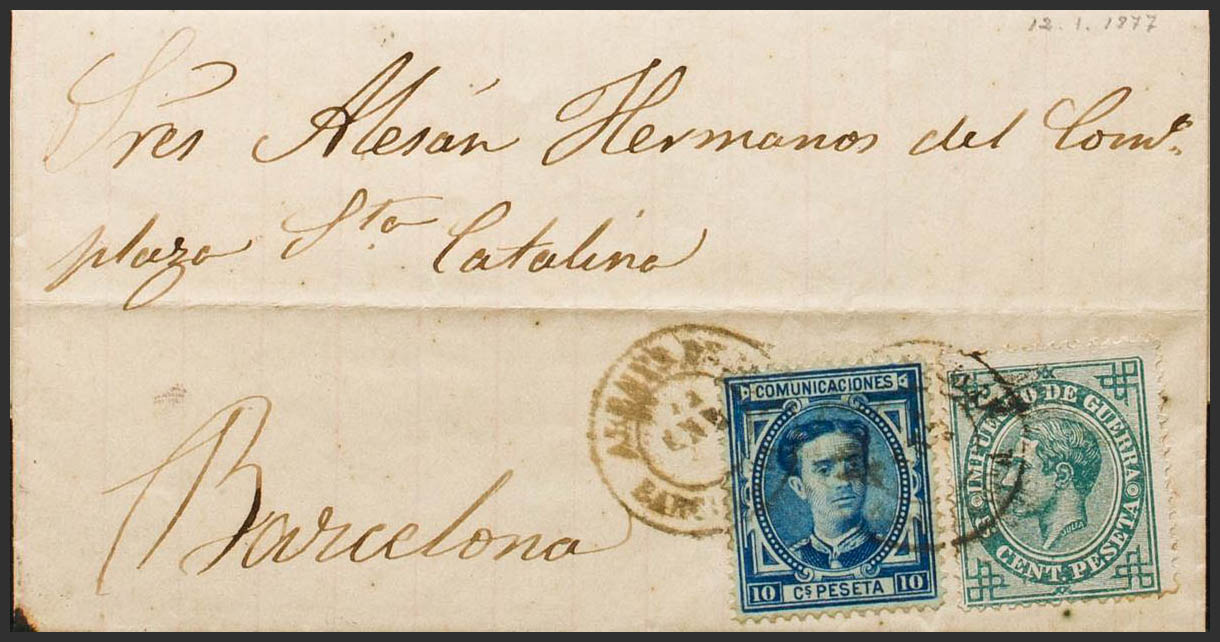 12. 1. 1877
Sres Alesán Hermanos del Como.
plaza Sta Catalina
Barcelona
COMUNICACIONES
10 Cs PESETA 10
IMPUESTO DE GUERRA
CENT. PESETA
JULIA